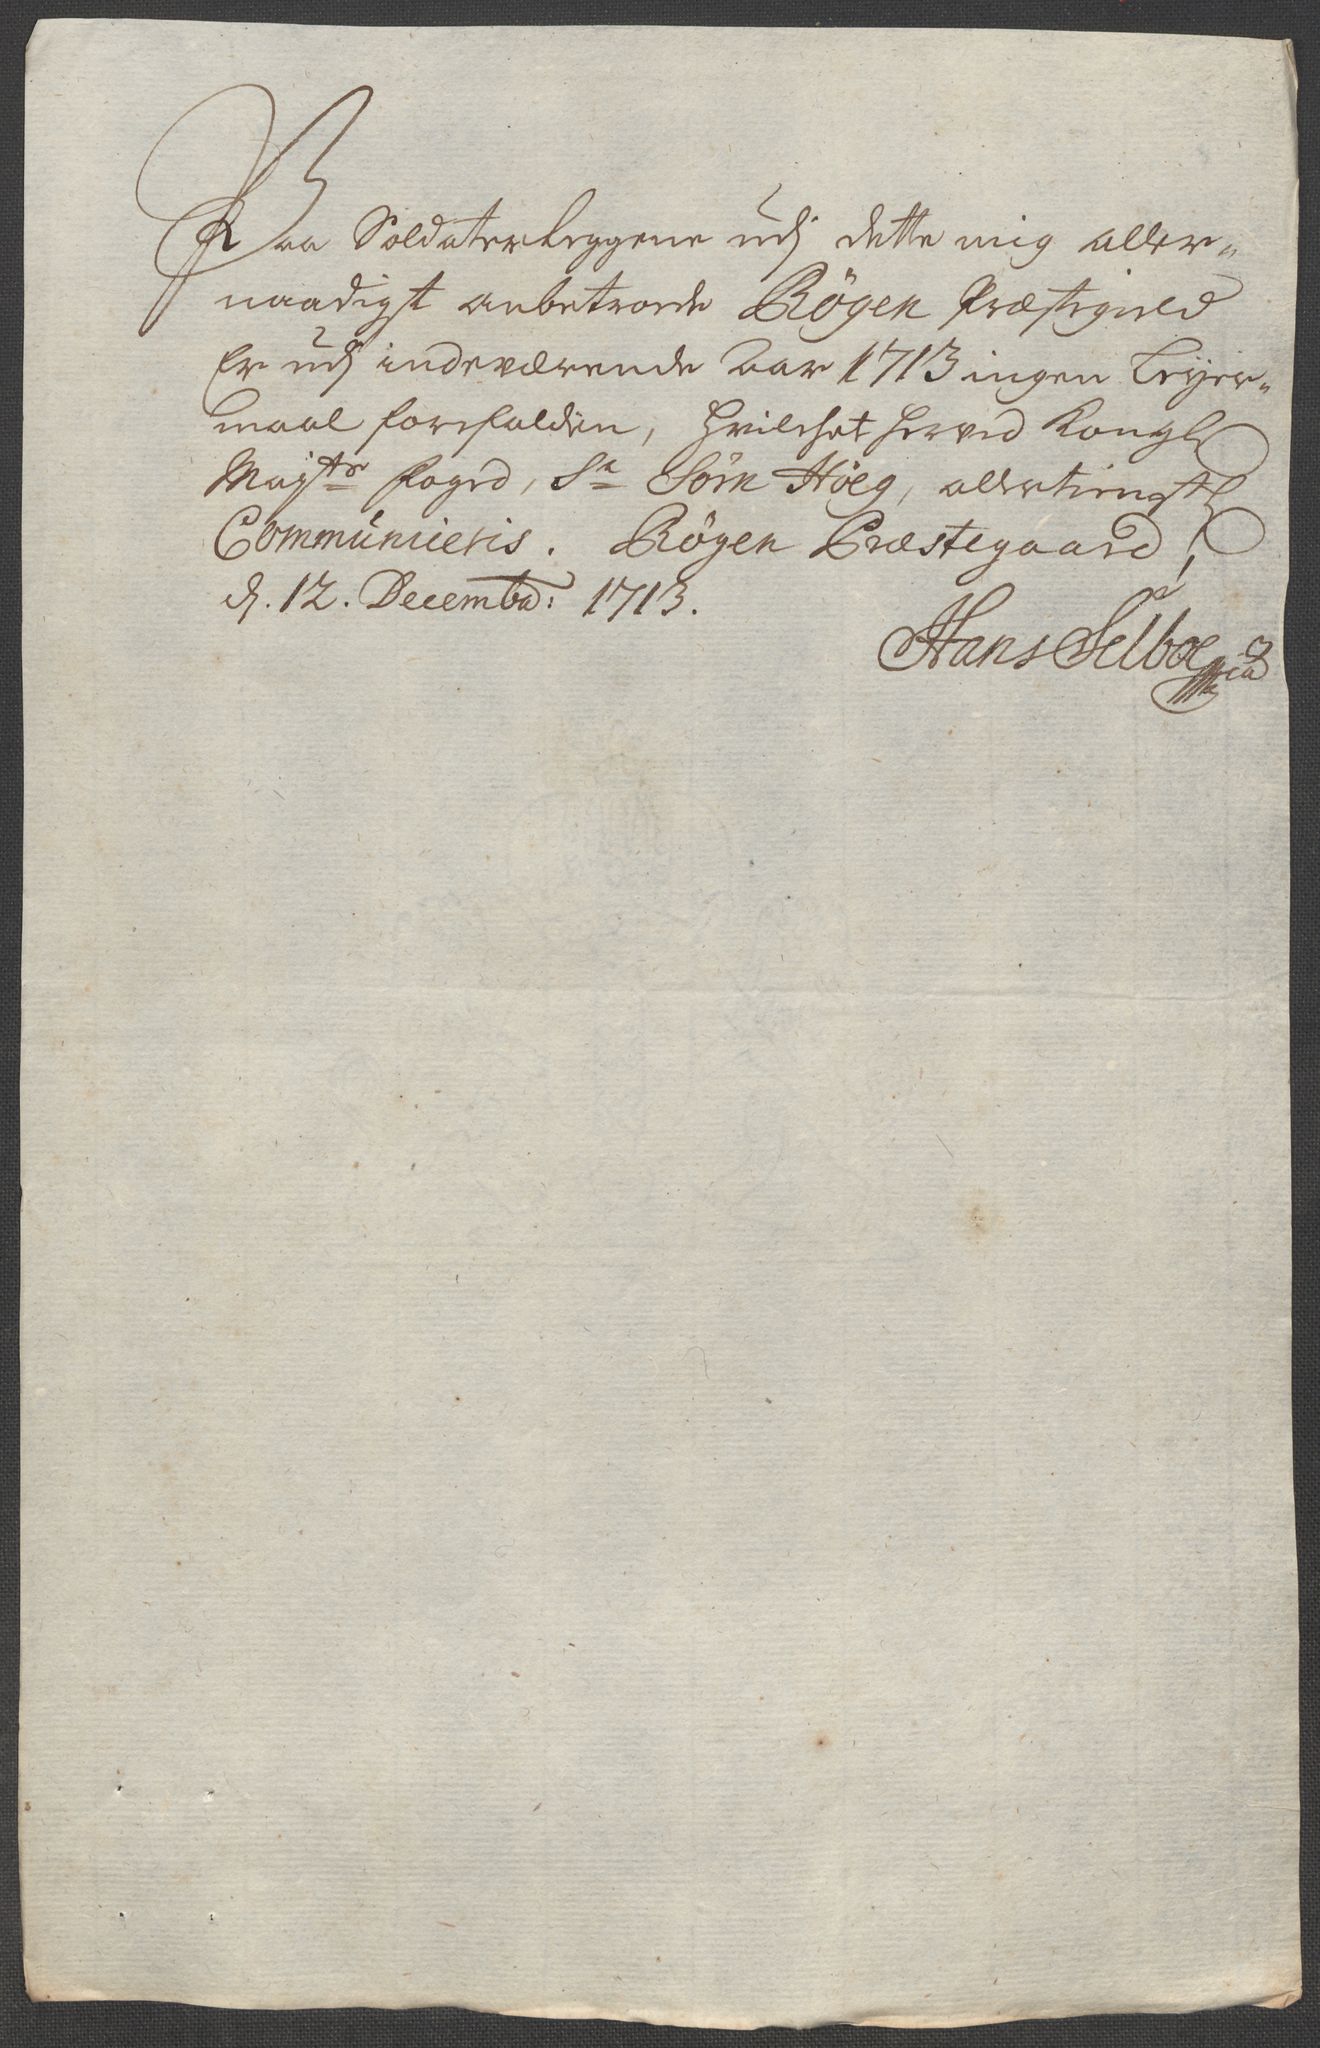 Paa Soldaterleggene udj dette mig aller-
naadigst anbetroede Røgen Præstegield
er udj indeværende Aar 1713 ingen Leyer-
maal forefalden, hvilchet herved Kongl
Majts Foged, Sr Sørn Høeg, allertienstl
Communiceris. Røgen Præstegaard,
d. 12. Decembr: 1713.
Hans Selboe